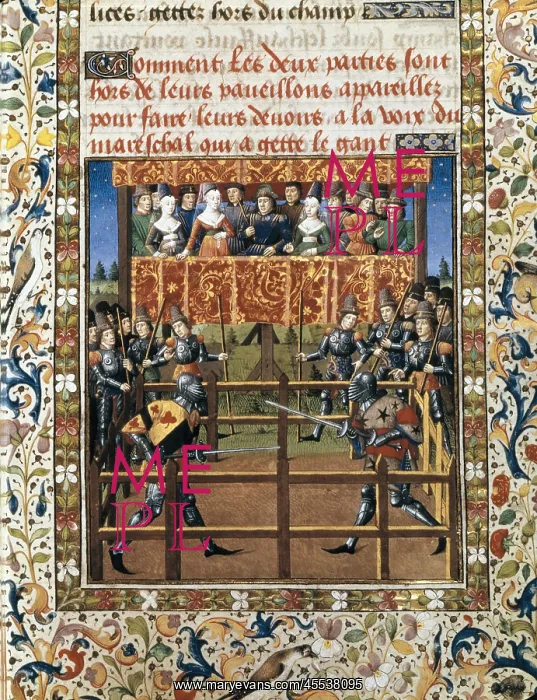 lices : gettez hors du champ
Comment les deux parties sont
hors de leurs paueillons apareillez
pour faire leurs deuoirs a la voix du
mareschal qui a gette le gant
ME
PL
ME
PL
www.maryevans.com/45538095